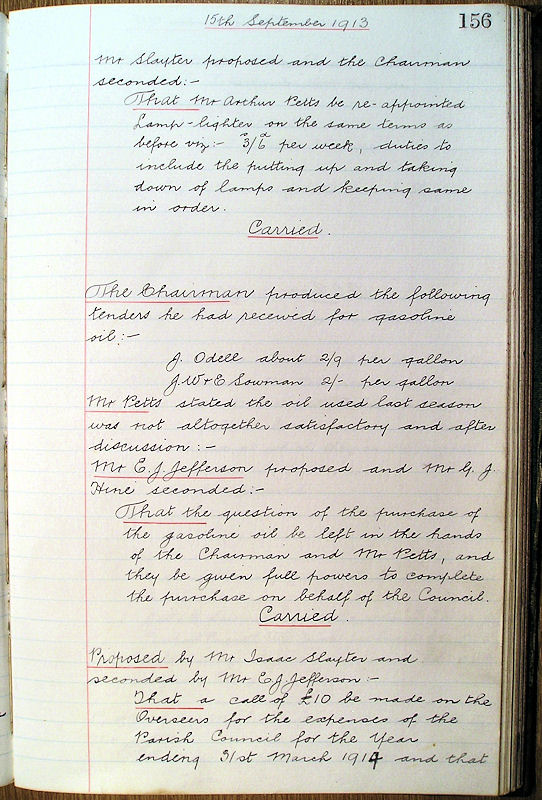 15th September 1913
156
Mr Slayter proposed and the Chairman
seconded:-
That Mr Arthur Petts be re-appointed
Lamp-lighter on the same terms as
before viz:- 3/6 per week, duties to
include the putting up and taking
down of lamps and keeping same
in order.
Carried.
The Chairman produced the following
tenders he had received for gasoline
oil:-
J. Odell about 2/9 per gallon
J.W & E Sowman 2/- per gallon
Mr Petts stated the oil used last season
was not altogether satisfactory and after
discussion:-
Mr E.J. Jefferson proposed and Mr G. J.
Hine seconded:-
That the question of the purchase of
the gasoline oil be left in the hands
of the Chairman and Mr Petts, and
they be given full powers to complete
the purchase on behalf of the Council.
Carried.
Proposed by Mr Isaac Slayter and
seconded by Mr E J Jefferson:-
That a call of £10 be made on the
Overseers for the expenses of the
Parish Council for the Year
ending 31st March 1914 and that